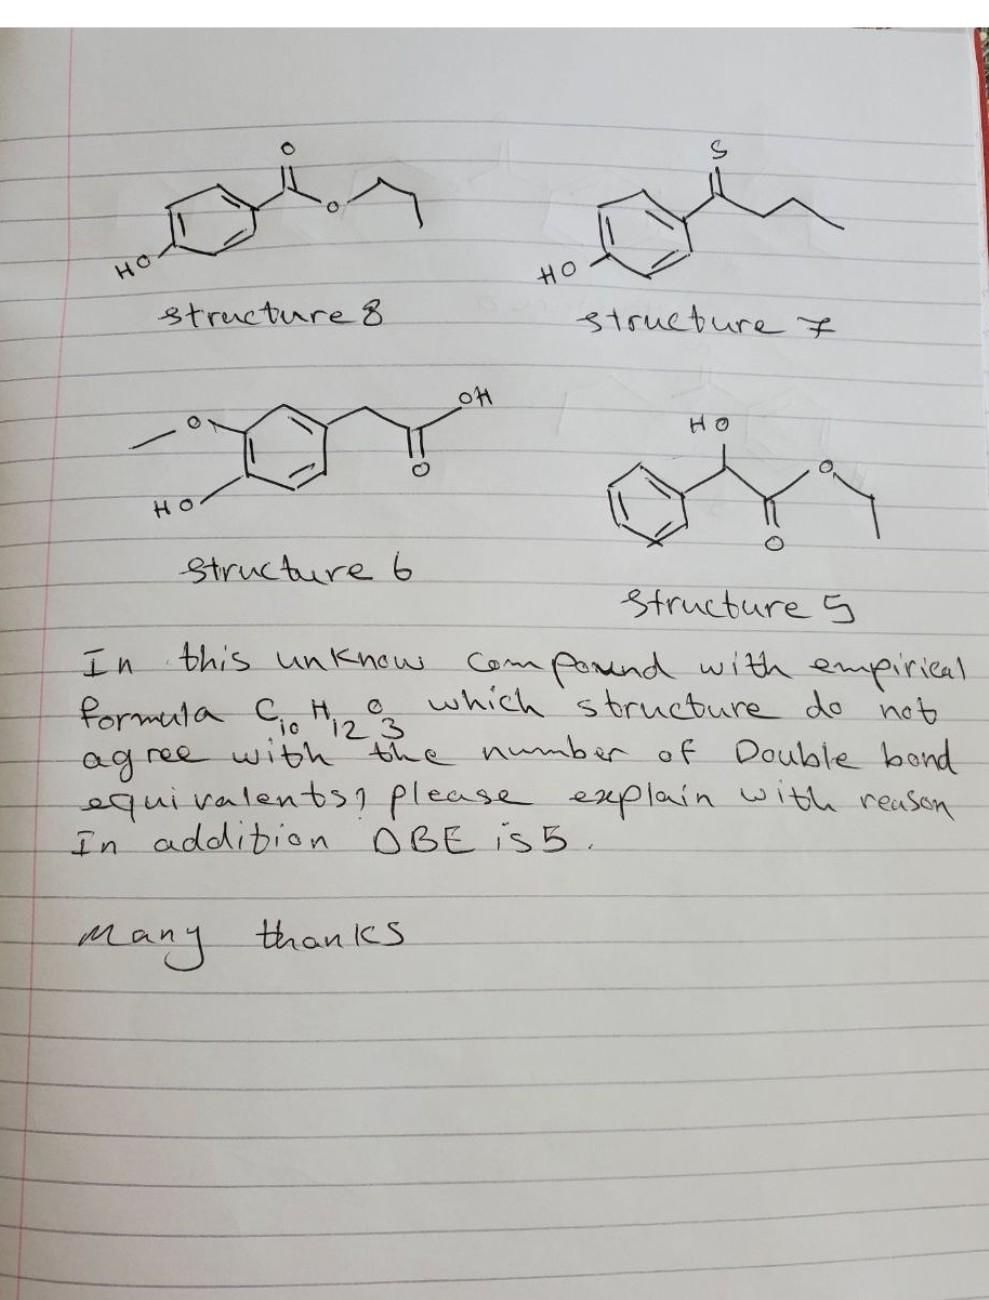 O
S
O
HO
HO
structure 8
structure 7
O
OH
HO
O
HO
O
O
structure 6
structure 5
In this unknow compound with empirical
formula C10 H12 O3 which structure do not
agree with the number of Double bond
equivalents? please explain with reason
In addition DBE is 5.
Many thanks